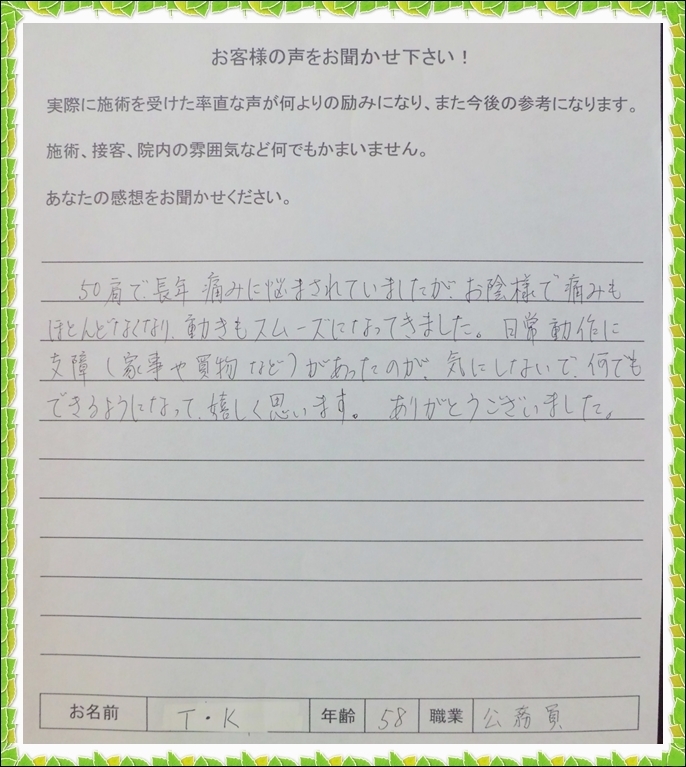 お客様の声をお聞かせ下さい！
実際に施術を受けた率直な声が何よりの励みになり、また今後の参考になります。
施術、接客、院内の雰囲気など何でもかまいません。
あなたの感想をお聞かせください。
50肩で、長年痛みに悩まされていましたが、お陰様で痛みも
ほとんどなくなり、動きもスムーズになってきました。日常動作に
支障（家事や買物など）があったのが、気にしないで、何でも
できるようになって、嬉しく思います。ありがとうございました。
お名前 T・K 年齢 58 職業 公務員